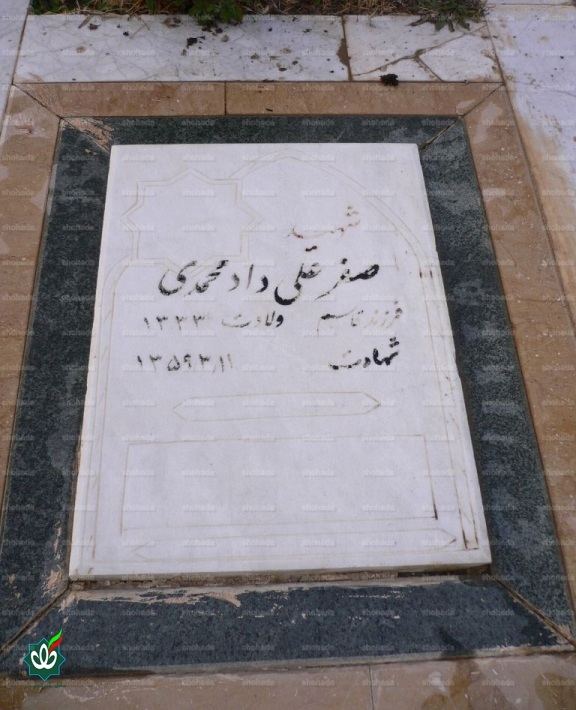 شهید
صفر علی داد محمدی
فرزند قاسم ولادت ۱۳۳۳
شهادت ۱۳۵۹٫۳٫۱۱